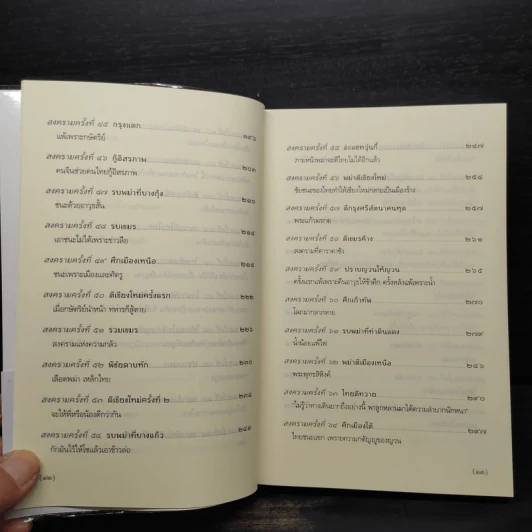 สงครามครั้งที่ ๔๕ กรุงแตก
แพ้เพราะกษัตริย์
สงครามครั้งที่ ๔๖ กู้อิสรภาพ ๒๐๓
คนจีนช่วยคนไทยกู้อิสรภาพ
สงครามครั้งที่ ๔๗ รบพม่าที่บางกุ้ง ๒๑๐
ชนะด้วยอาวุธสั้น
สงครามครั้งที่ ๔๘ รบเขมร ๒๑๔
เอาชนะไม่ได้เพราะข่าวลือ
สงครามครั้งที่ ๔๙ ศึกเมืองเหนือ ๒๑๘
ชนะเพราะเมืองและศัตรู
สงครามครั้งที่ ๕๐ ตีเชียงใหม่ครั้งแรก ๒๒๒
เมื่อกษัตริย์นำหน้า ทหารก็สู้ตาย
สงครามครั้งที่ ๕๑ รวมเขมร ๒๒๖
สงครามแห่งความกลัว
สงครามครั้งที่ ๕๒ พิชัยดาบหัก ๒๓๐
เลือดพม่า เหล็กไทย
สงครามครั้งที่ ๕๓ ตีเชียงใหม่ครั้งที่ ๒ ๒๓๔
จะให้พี่หรือน้องดีกว่ากัน
สงครามครั้งที่ ๕๔ รบพม่าที่บางแก้ว ๒๔๑
กักมันไว้ให้โซแล้วเอาข้าวล่อ
(๑๒)
สงครามครั้งที่ ๕๕ อะแซหวุ่นกี้ ๒๔๗
ภายหน้าพม่าจะตีไทยไม่ได้อีกแล้ว
สงครามครั้งที่ ๕๖ พม่าตีเชียงใหม่ ๒๕๔
ชัยชนะของไทยทำให้เชียงใหม่กลายเป็นเมืองร้าง
สงครามครั้งที่ ๕๗ ตีกรุงศรีสัตนาคนหุต ๒๕๗
พระแก้วมรกต
สงครามครั้งที่ ๕๘ ตีเขมรค้าง ๒๖๑
สงครามที่ตีดาดาซัง
สงครามครั้งที่ ๕๙ ปราบญวนให้ญวน ๒๖๕
ครั้งแรกแพ้เพราะคืนอาวุธให้ข้าศึก ครั้งหลังแพ้เพราะน้ำ
สงครามครั้งที่ ๖๐ ศึกเก้าทัพ ๒๗๐
สงครามครั้งที่ ๖๑ รบพม่าที่ท่าดินแดง ๒๗๙
น้ำน้อยแพ้ไฟ
สงครามครั้งที่ ๖๒ พม่าตีเมืองเหนือ ๒๘๖
พระพุทธสิหิงค์
สงครามครั้งที่ ๖๓ ไทยตีทวาย ๒๙๐
"ไม่รู้ว่าทางเดินยากถึงอย่างนี้ พาลูกหลานมาได้ความลำบากนักหนา"
สงครามครั้งที่ ๖๔ ศึกเมืองใต้ ๒๙๗
ไทยชนะแขก เพราะความกตัญญูของญวน
(๑๓)